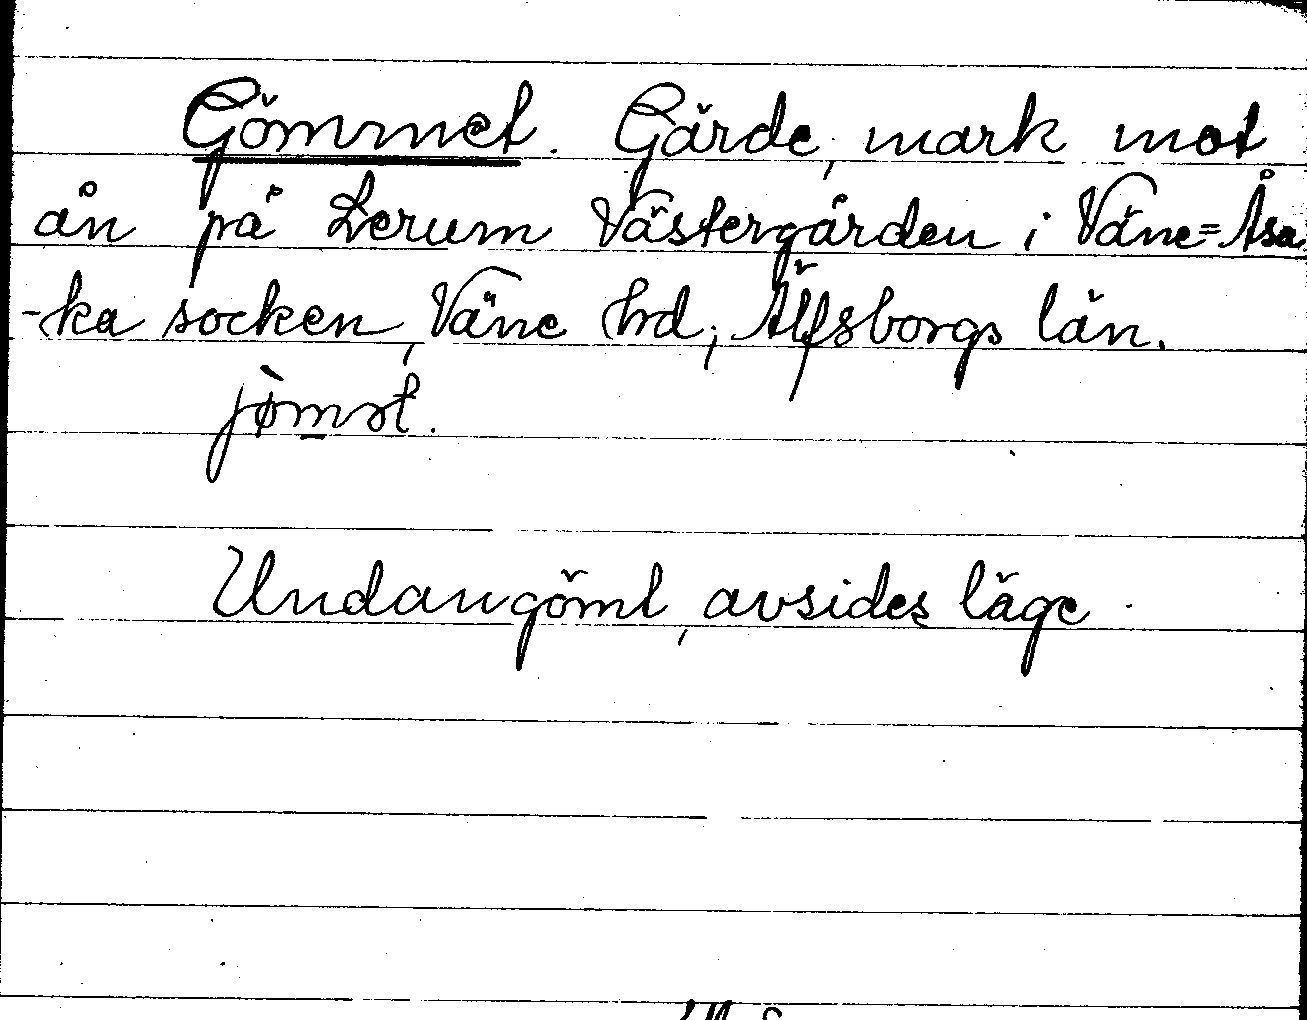 Gömmet. Gärde, mark mot
ån på Lerum Västergården i Väne=Åsa
-ka socken, Väne hd; Älfsborgs län.
jømət.
Undangömt, avsides läge.